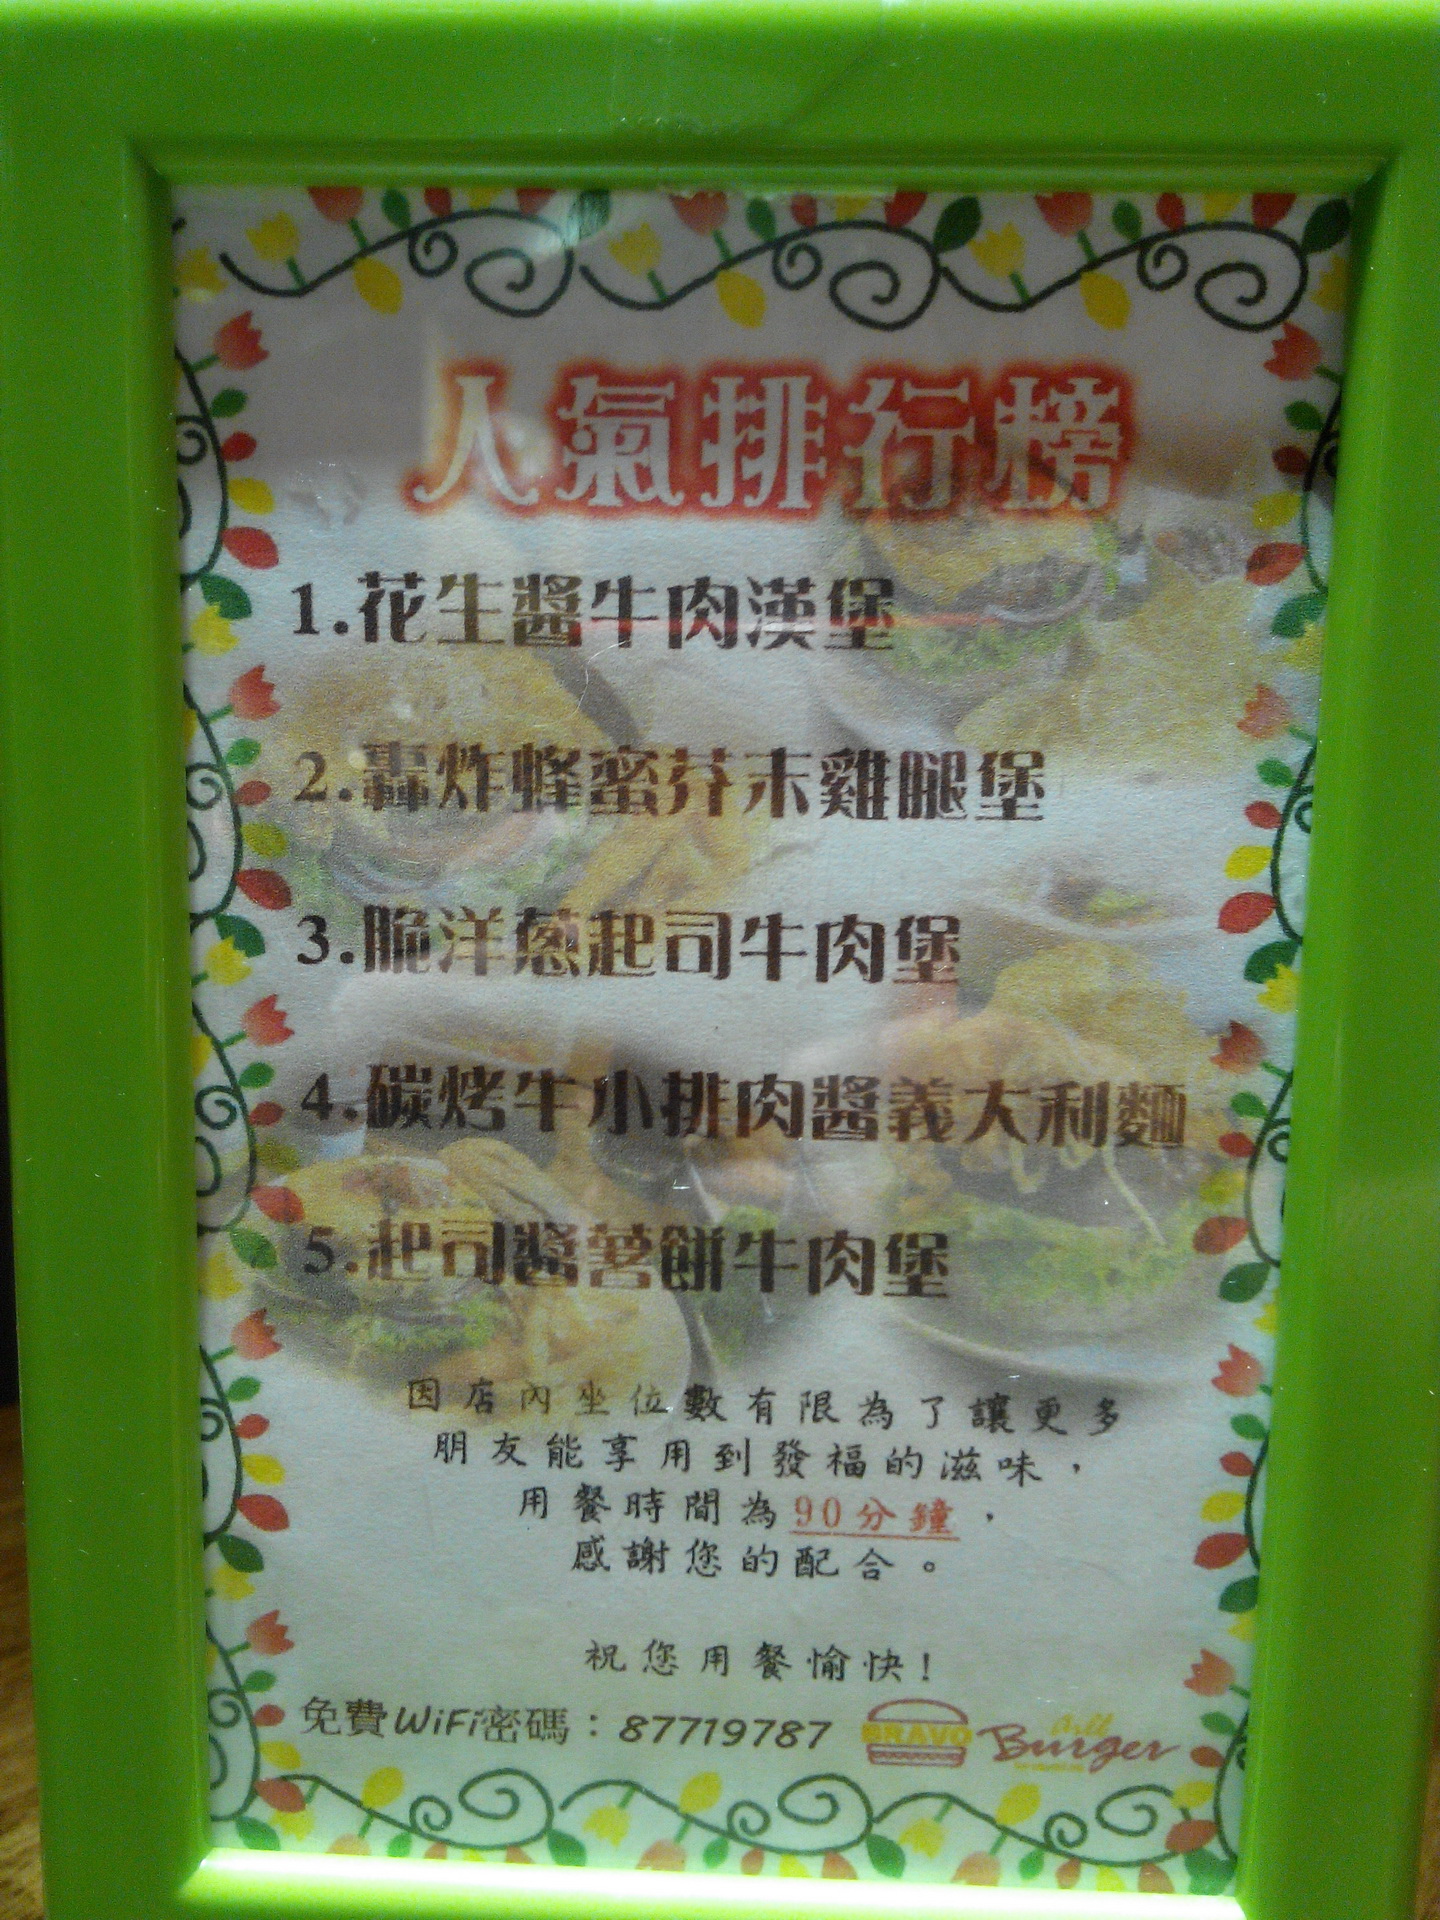 人氣排行榜
1.花生醬牛肉漢堡
2.轟炸蜂蜜芥末雞腿堡
3.脆洋蔥起司牛肉堡
4.碳烤牛小排肉醬義大利麵
5.起司醬薯餅牛肉堡
因店內坐位數有限為了讓更多
朋友能享用到發福的滋味，
用餐時間為90分鐘，
感謝您的配合。
祝您用餐愉快！
免費WiFi密碼：87719787
BRAVO Grill Burger